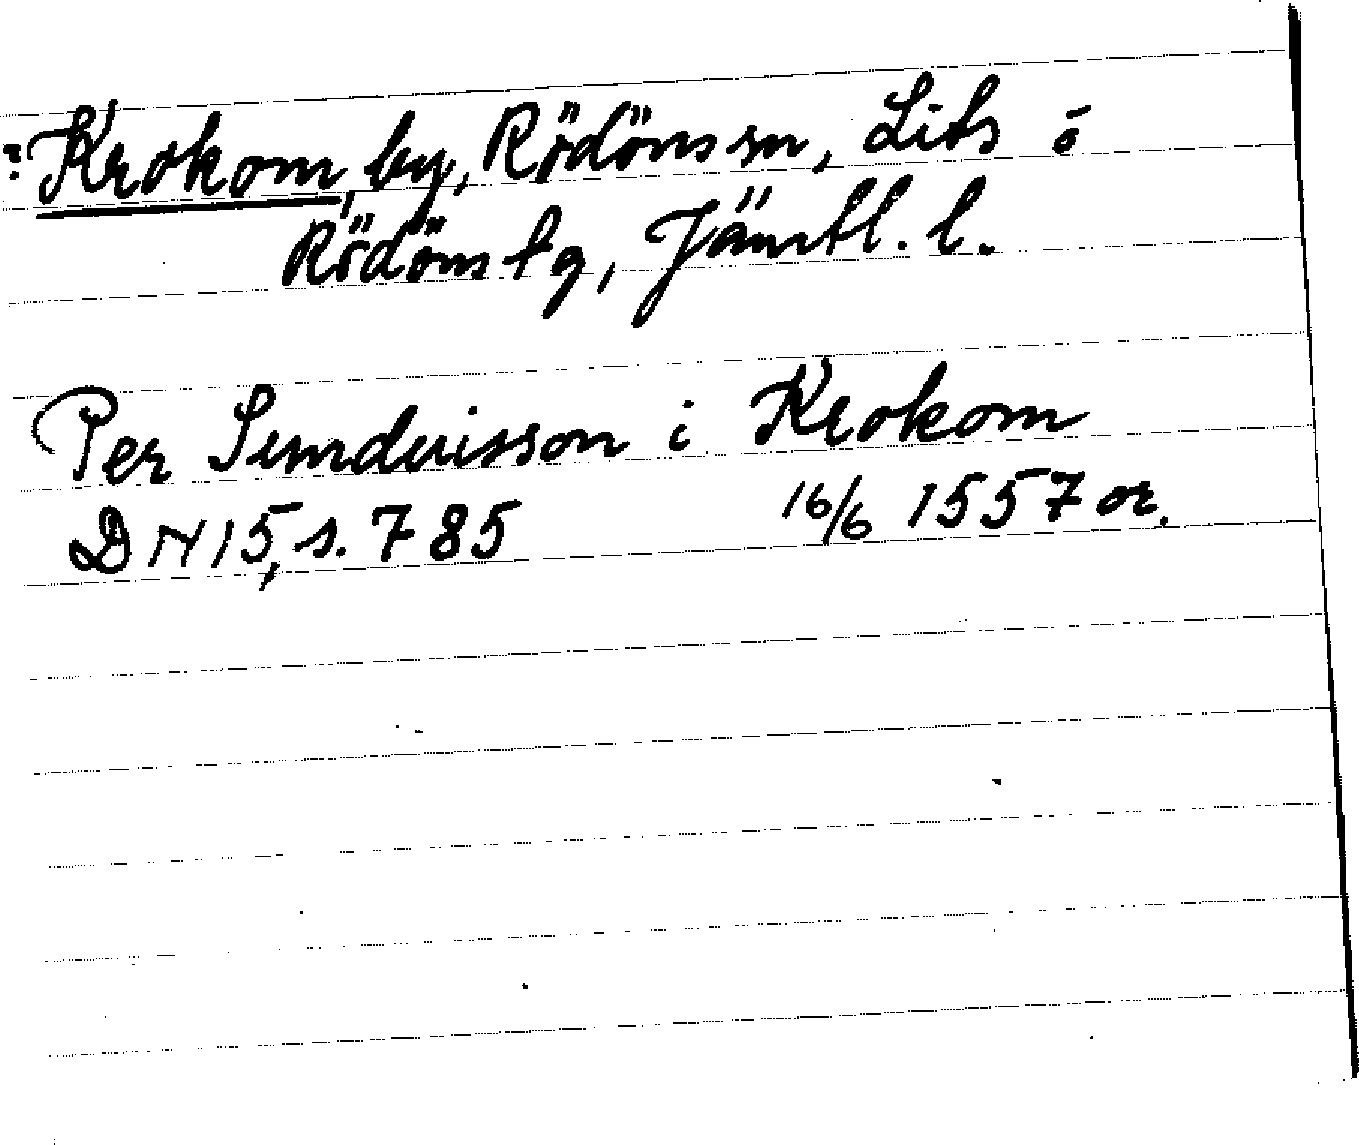 : Krokom, by, Rödöns sn, Lits ö
Rödöns tg, Jämtl. l.
Per Simduisson i Krokom
DN 15, s. 785 16/6 1557 or.